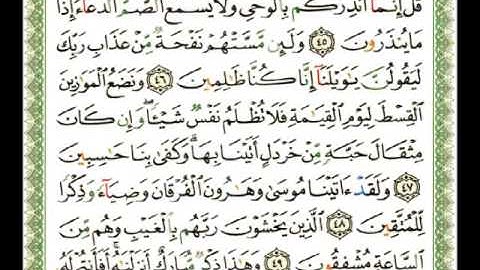 قُلْ إِنَّمَآ أُنذِرُكُم بِٱلْوَحْىِ وَلَا يَسْمَعُ ٱلصُّمُّ ٱلدُّعَآءَ إِذَا
مَا يُنذَرُونَ ٤٥ وَلَئِن مَّسَّتْهُمْ نَفْحَةٌ مِّنْ عَذَابِ رَبِّكَ
لَيَقُولُنَّ يَٰوَيْلَنَآ إِنَّا كُنَّا ظَٰلِمِينَ ٤٦ وَنَضَعُ ٱلْمَوَٰزِينَ
ٱلْقِسْطَ لِيَوْمِ ٱلْقِيَٰمَةِ فَلَا تُظْلَمُ نَفْسٌ شَيْـًٔا ۖ وَإِن كَانَ
مِثْقَالَ حَبَّةٍ مِّنْ خَرْدَلٍ أَتَيْنَا بِهَا ۗ وَكَفَىٰ بِنَا حَٰسِبِينَ
٤٧ وَلَقَدْ ءَاتَيْنَا مُوسَىٰ وَهَٰرُونَ ٱلْفُرْقَانَ وَضِيَآءً وَذِكْرًا
لِّلْمُتَّقِينَ ٤٨ ٱلَّذِينَ يَخْشَوْنَ رَبَّهُم بِٱلْغَيْبِ وَهُم مِّنَ
ٱلسَّاعَةِ مُشْفِقُونَ ٤٩ وَهَٰذَا ذِكْرٌ مُّبَارَكٌ أَنزَلْنَٰهُ ۚ أَفَأَنتُمْ لَهُۥ